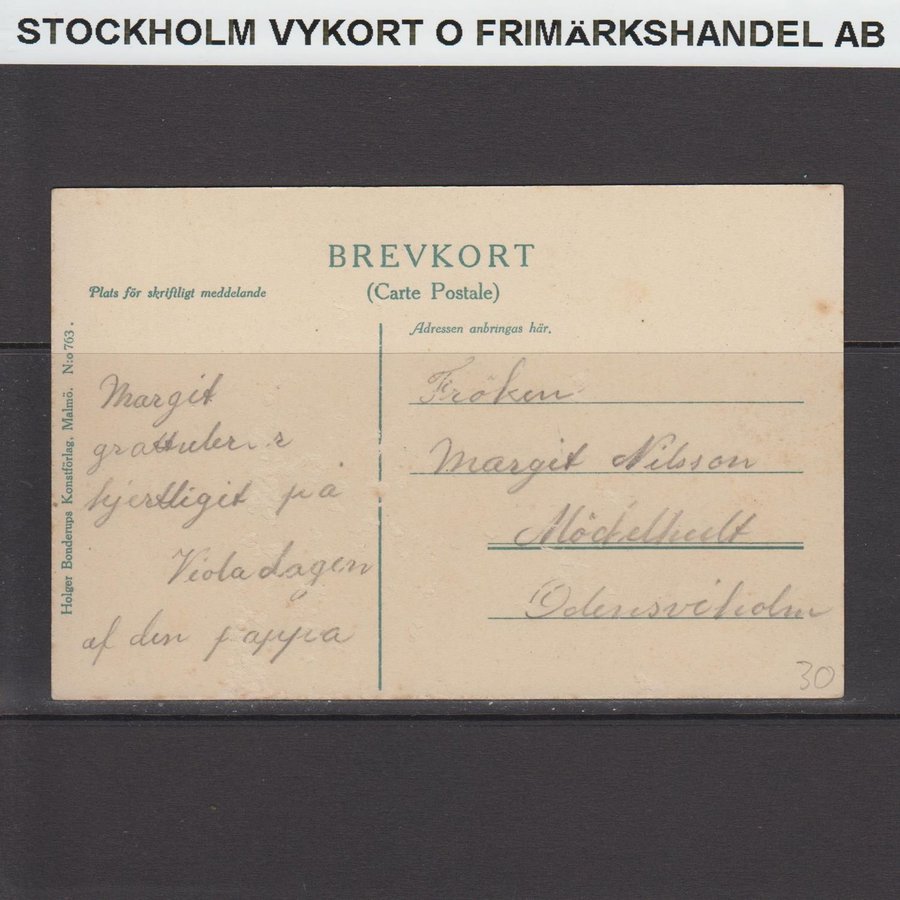 STOCKHOLM VYKORT O FRIMÄRKSHANDEL AB
BREVKORT
(Carte Postale)
Plats för skriftligt meddelande
Adressen anbringas här.
Holger Bonderups Konstförlag, Malmö. N:o 763.
Margit
hjertligit på
Violadagen
af den pappa
Fröken
Margit Nilsson
Mödelhult
Odensviholm
30